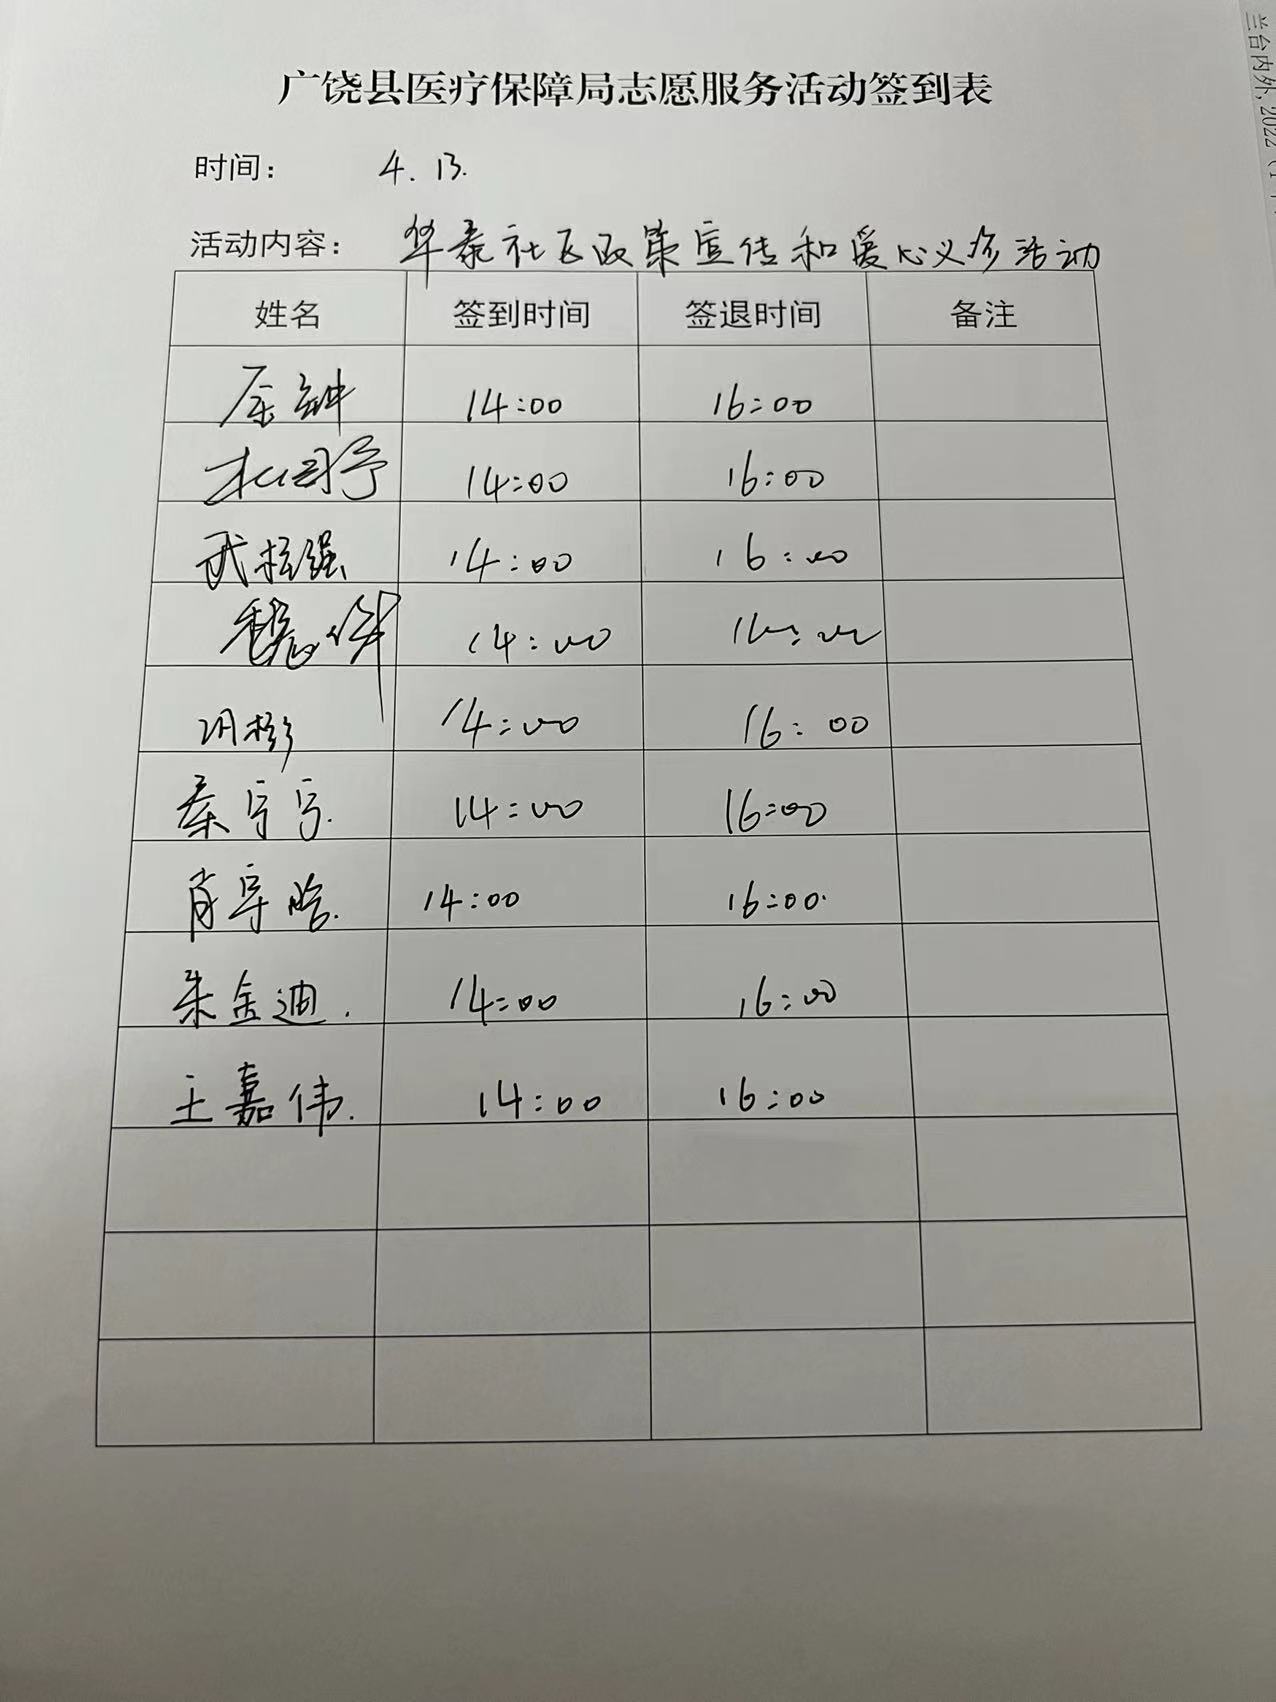 兰台内外, 2022 (1
广饶县医疗保障局志愿服务活动签到表
时间： 4.13.
活动内容： 华泰社区政策宣传和爱心义诊活动
姓名 签到时间 签退时间 备注
14:00 16:00
14:00 16:00
武 强 14:00 16:00
14:00 16:00
14:00 16:00
秦宁宁. 14:00 16:00
肖宇晗. 14:00 16:00.
朱金迪. 14:00 16:00
王嘉伟. 14:00 16:00